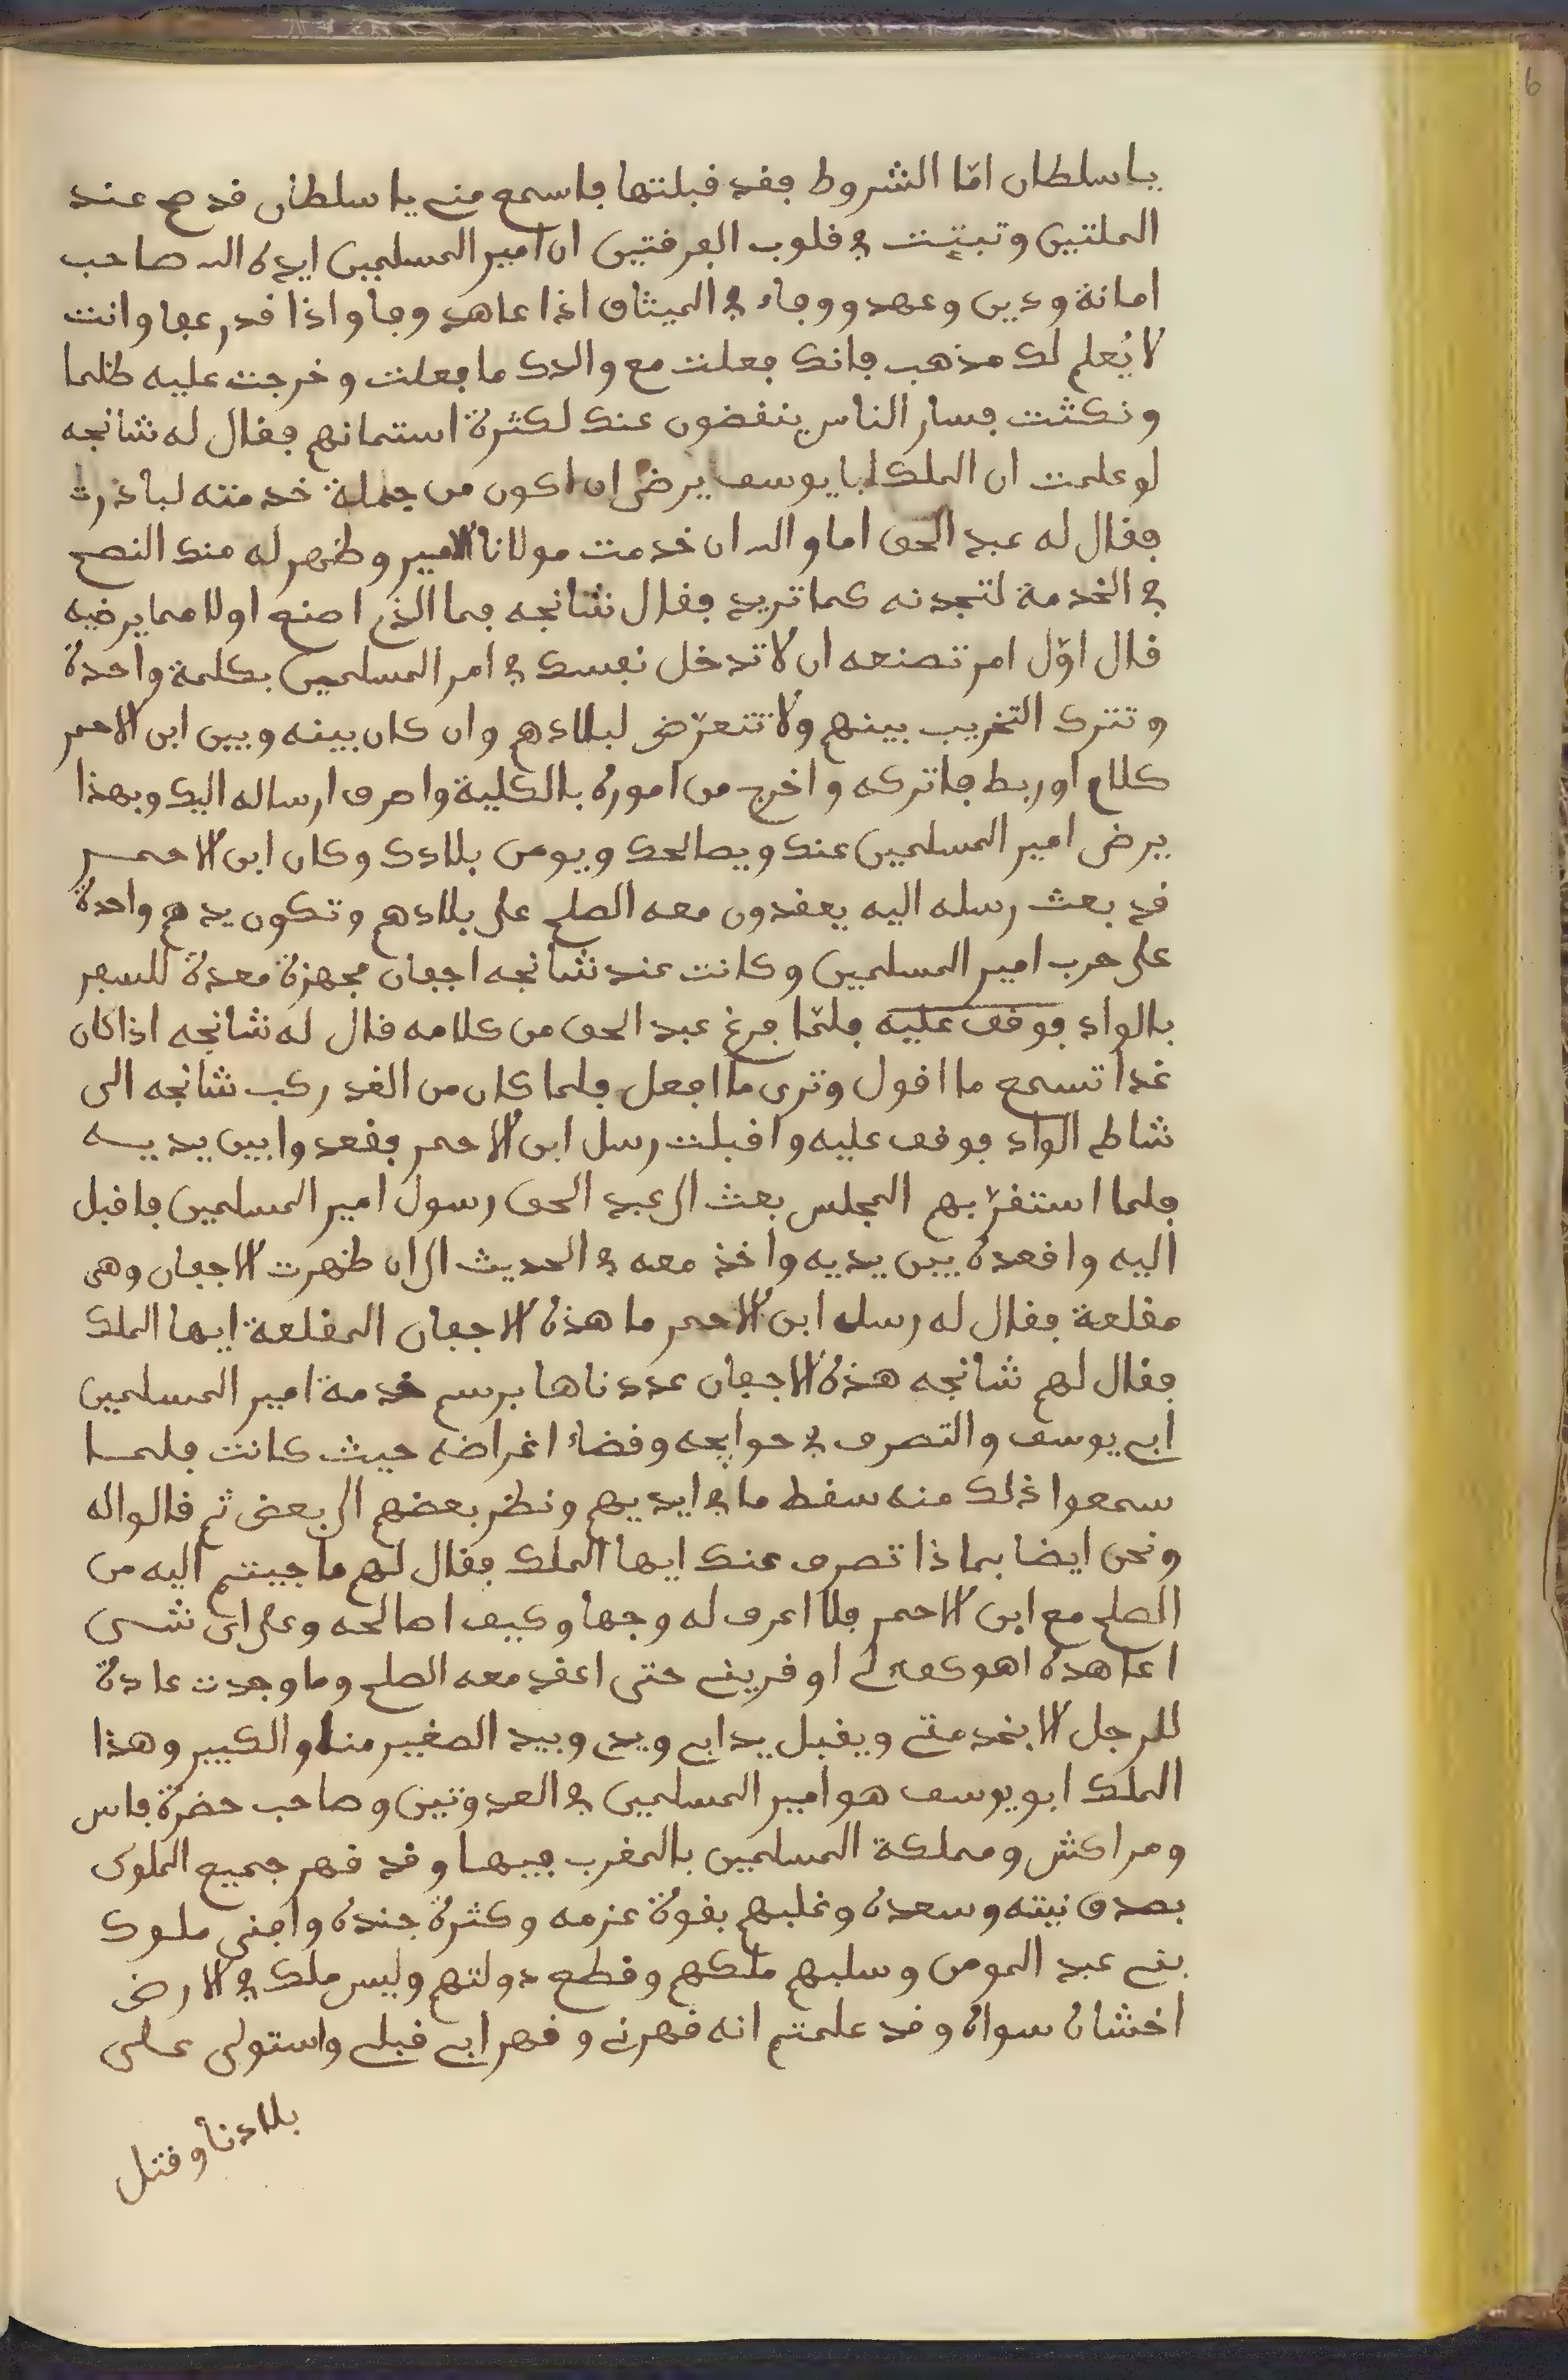 يا سلطان امّا الشروط فقد قبلتها فاسمع مني يا سلطان قد صح عند
الملتين وتبيّت في قلوب الفرقتين ان امير المسلمين ايده الله صاحب
امانة ودين وعهد ووفاء في الميثاق اذا عاهد وفا واذا قدر عفا وانت
لا يُعلم لك مذهب فانك فعلت مع والدك ما فعلت وخرجت عليه ظلما
ونكثت فسار الناس ينفضون عنك لكثرة استمانهم فقال له شانجه
لو علمت ان الملك ابا يوسف يرضى ان اكون من جملة خدمته لباذرت
فقال له عبد الحق اما والله ان خدمت مولانا الامير وظهر له منك النصح
في الخدمة لتجدنه كما تريد فقال شانجه فما الذي اصنع اولا مما يرضيه
قال اوّل امر تصنعه ان لا تدخل نفسك في امر المسلمين بكلمة واحدة
وتترك التخريب بينهم ولا تتعرّض لبلادهم وان كان بينه وبين ابن الاحمر
كلام او ربط فاتركه واخرج من اموره بالكلية واصرف ارساله اليك وبهذا
يرضى امير المسلمين عنك ويصالحك ويومن بلادك وكان ابن الاحمر
قد بعث رسله اليه يعقدون معه الصلح على بلادهم وتكون يدهم واحدة
على حرب امير المسلمين وكانت عند شانجه اجفان مجهزة معدة للسفر
بالواد فوقف عليه فلمّا فرغ عبد الحق من كلامه قال له شانجه اذا كان
غدا تسمع ما اقول وترى ما افعل فلما كان من الغد ركب شانجه الى
شاطى الواد فوقف عليه واقبلت رسل ابن الاحمر فقعدوا بين يديه
فلما استقرّ بهم المجلس بعث الى عبد الحق رسول امير المسلمين فاقبل
اليه واقعده بين يديه واخذ معه في الحديث الى ان ظهرت الاجفان وهى
مقلعة فقال له رسل ابن الاحمر ما هذه الاجفان المقلعة ايها الملك
فقال لهم شانجه هذه الاجفان عددناها برسم خدمة امير المسلمين
ابي يوسف والتصرف في حوايجه وقضاء اغراضه حيث كانت فلما
سمعوا ذلك منه سقط ما في ايديهم ونظر بعضهم الى بعض ثم قالوا له
ونحن ايضا بماذا تصرف عنك ايها الملك فقال لهم ما جيتم اليه من
الصلح مع ابن الاحمر فلا اعرف له وجها وكيف اصالحه وعلى اى شى
اعاهده اهو كفء لي او قريني حتى اعقد معه الصلح وما وجدت عادة
للرجل الا بخدمتي ويقبل يد ابي ويدي وبيد الصغير منا والكبير وهذا
الملك ابو يوسف هو امير المسلمين في العدوتين وصاحب حضرة فاس
ومراكش ومملكة المسلمين بالمغرب فيها وقد قهر جميع الملوك
بصدق نيته وسعده وغلبهم بقوة عزمه وكثرة جنده وافنى ملوك
بني عبد المومن وسلبهم ملكهم وقطع دولتهم وليس ملك في الارض
اخشاه سواه وقد علمتم انه قهرني وقهر ابي قبلي واستولى على
بلادنا وقتل